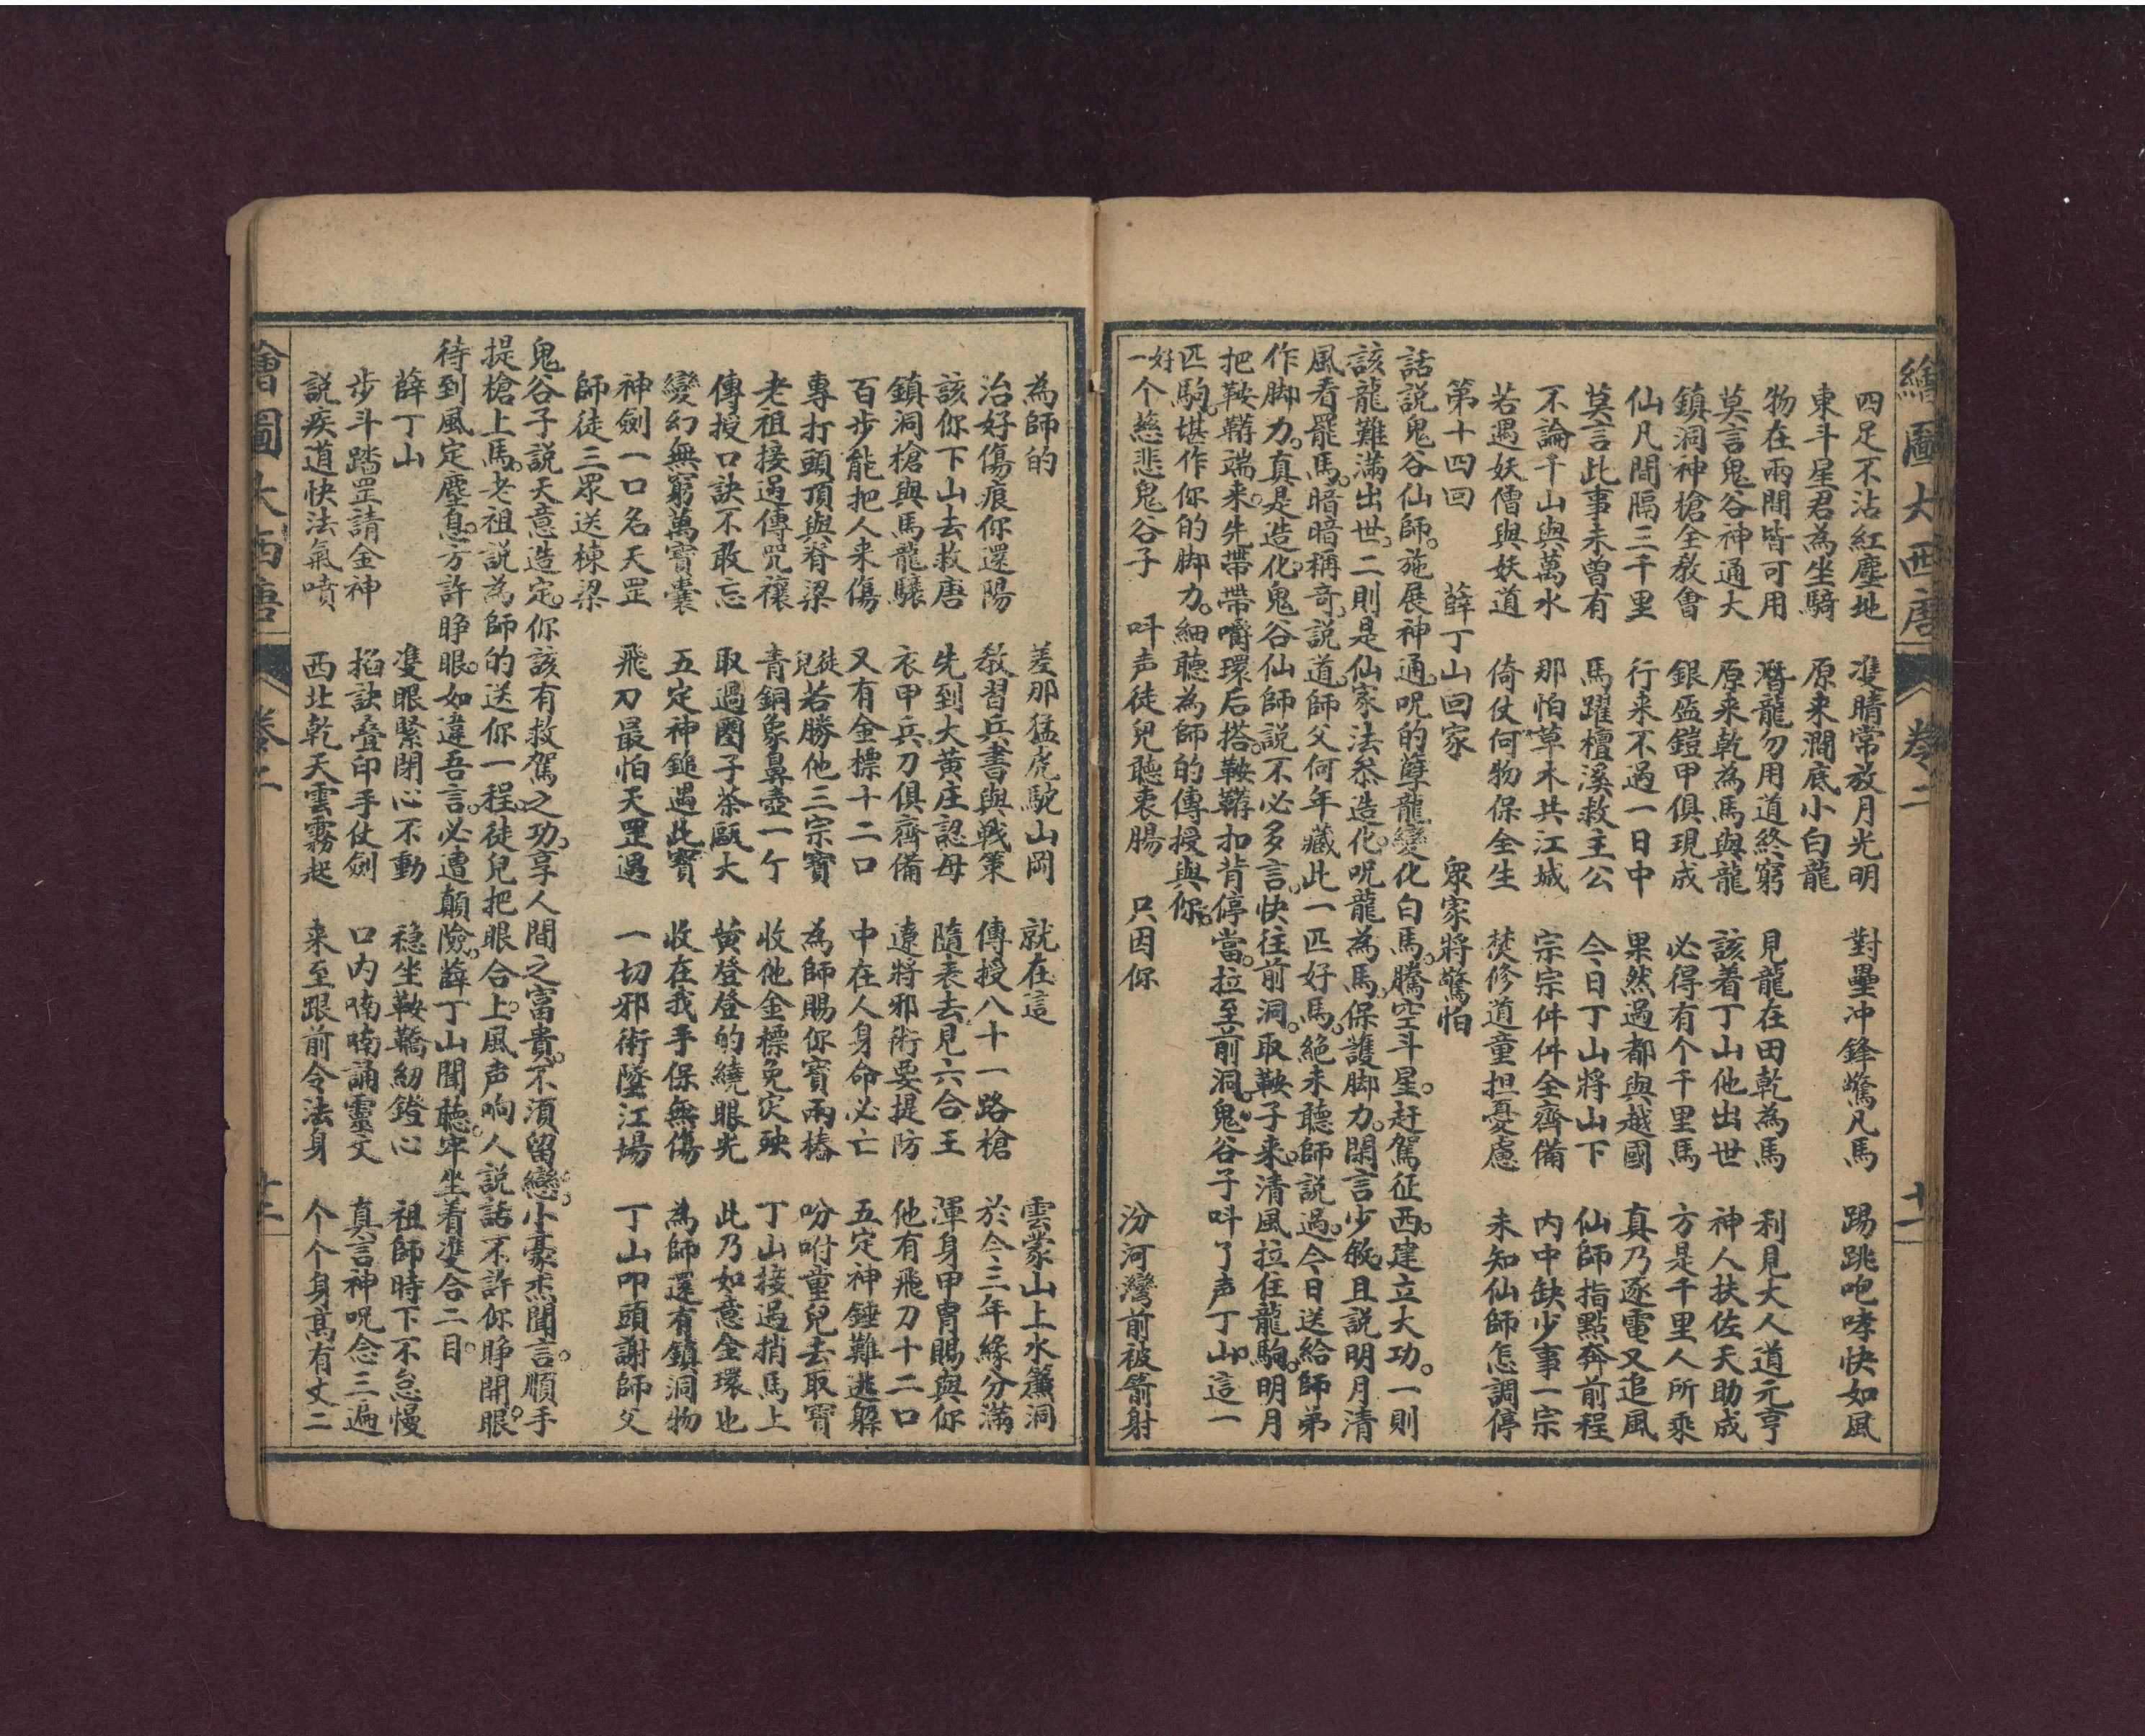 繪圖大西唐 卷二 十二
四足不沾紅塵地 雙睛常放月光明 對壘冲鋒驚凡馬 踢跳咆哮快如風
東斗星君為坐騎 原来澗底小白龍
物在兩間皆可用 潛龍勿用道終窮 見龍在田乾為馬 利見大人道元亨
莫言鬼谷神通大 原来乾為馬與龍 該着丁山他出世 神人扶佐天助成
鎮洞神槍全教會 銀盔鎧甲俱現成 必得有个千里馬 方是千里人所乘
仙凡間隔三千里 行来不過一日中 果然過都與越國 真乃逐電又追風
莫言此事未曾有 馬躍檀溪救主公 今日丁山將山下 仙師指點奔前程
不論千山與萬水 那怕草木共江城 宗宗件件全齊備 内中缺少事一宗
若遇妖僧與妖道 倚仗何物保全生 焚修道童担憂慮 未知仙師怎調停
第十四回 薛丁山回家 眾家將驚怕
話說鬼谷仙師。施展神通。呪的孽龍變化白馬。騰空斗星。赶駕征西。建立大功。一則
該龍難滿出世。二則是仙家法忝造化。呪龍為馬。保護脚力。閑言少敘。且説明月清
風看罷馬。暗暗稱奇。説道。師父何年藏此一匹好馬。絕未聽師説過。今日送給師弟
作脚力。真是造化。鬼谷仙師説。不必多言。快往前洞。取鞍子来。清風拉住龍駒。明月
把鞍韉端来。先帶帶嚼環。后搭鞍韉。扣背停當。拉至前洞。鬼谷子呌了声丁山。這一
匹駒。堪作你的脚力。細聽為師的傳授與你。
好一个慈悲鬼谷子 呌声徒兒聽衷腸 只因你 汾河灣前被箭射
為師的 差那猛虎駝山岡 就在這 雲蒙山上水簾洞
治好傷痕你還陽 教習兵書與戰策 傳授八十一路槍 於今三年緣分滿
該你下山去救唐 先到大黄庄認母 隨表去見六合王 渾身甲胄賜與你
鎮洞槍與馬龍驤 衣甲兵刀俱齊備 遼將邪術要提防 他有飛刀十二口
百步能把人来傷 又有金標十二口 中在人身命必亡 五定神錘難逃躱
專打頭頂與脊梁 徒兒若勝他三宗寳 為師賜你寳兩樁 吩咐童兒去取寳
老祖接過傳咒禳 青銅象鼻壺一个 收他金標免灾殃 丁山接過捎馬上
傳授口訣不敢忘 取過圈子茶甌大 黄登登的繞眼光 此乃如意金環也
變幻無窮萬寳囊 五定神鎚遇此寳 收在我手保無傷 為師還有鎮洞物
神劍一口名天罡 飛刀最怕天罡過 一切邪術墜江場 丁山叩頭謝師父
師徒三眾送棟梁
鬼谷子説。天意造定。你該有救駕之功。享人間之富貴。不須留戀。小豪杰聞言。順手
提槍上馬。老祖説。為師的送你一程。徒兒把眼合上。風声响。人説話。不許你睁開眼。
待到風定塵息。方許睁眼。如違吾言。必遭顛險。薛丁山聞聽。牢坐着雙合二目。
薛丁山 雙眼緊閉心不動 穩坐鞍鞽紉鐙心 祖師時下不怠慢
步斗踏罡請金神 掐訣叠印手仗劍 口内喃喃誦靈文 真言神呪念三遍
説疾道快法氣噴 西北乾天雲霧起 来至跟前令法身 个个身高有丈二
繪圖大西唐 卷二 十二